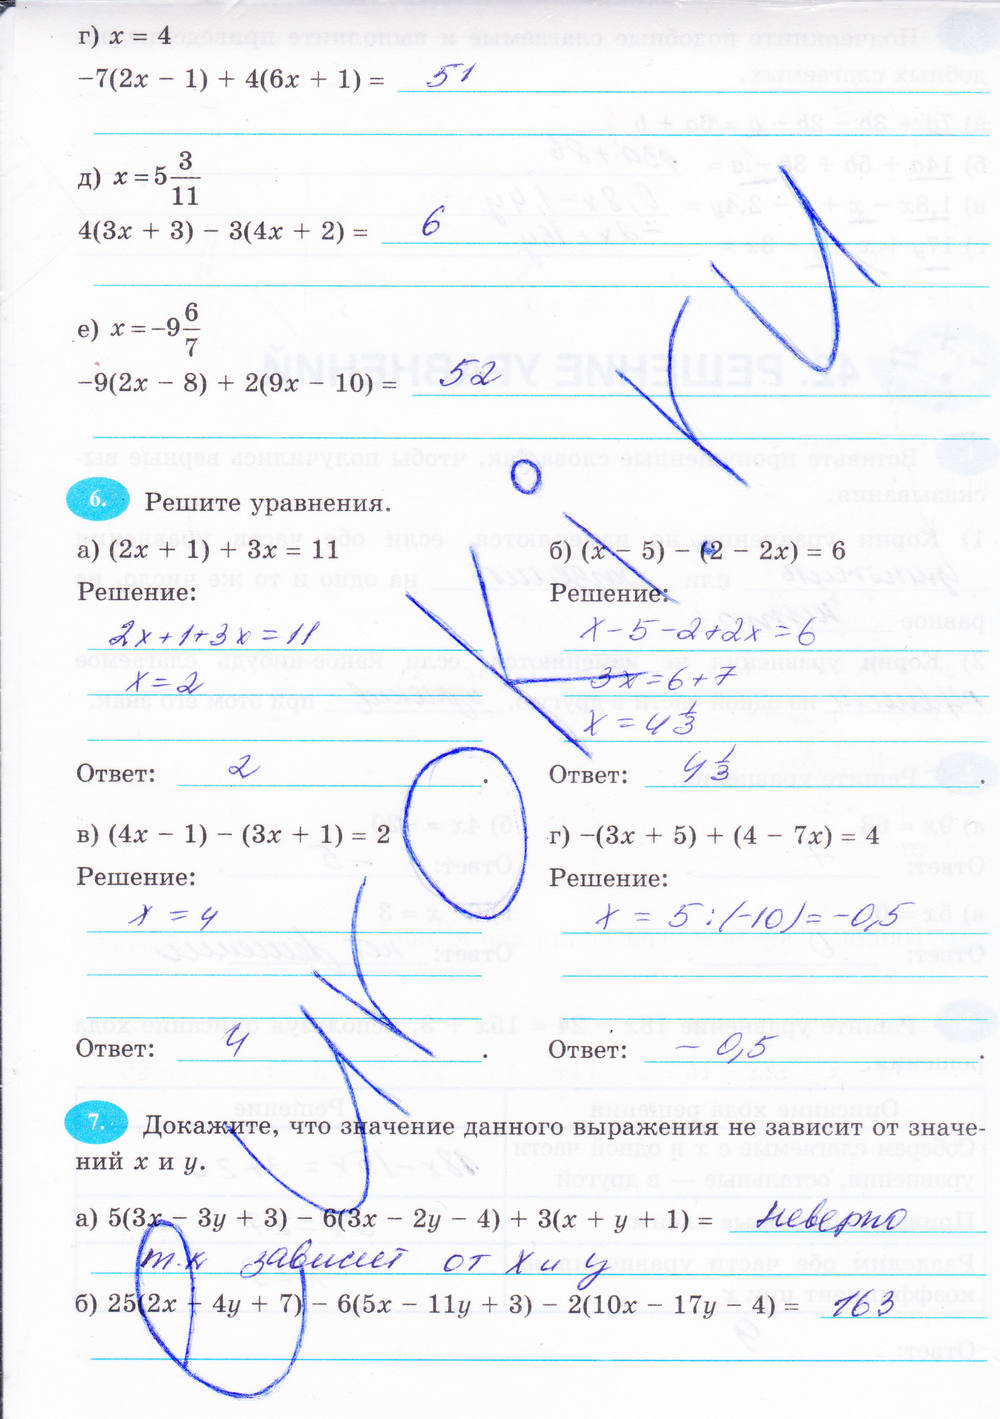 г) x = 4
−7(2x − 1) + 4(6x + 1) = 51
д) x = 5 3/11
4(3x + 3) − 3(4x + 2) = 6
е) x = −9 6/7
−9(2x − 8) + 2(9x − 10) = 52
6. Решите уравнения.
а) (2x + 1) + 3x = 11
Решение:
2x+1+3x=11
x=2
Ответ: 2.
б) (x − 5) − (2 − 2x) = 6
Решение:
x−5−2+2x=6
3x=6+7
x=4 1/3
Ответ: 4 1/3.
в) (4x − 1) − (3x + 1) = 2
Решение:
x = 4
Ответ: 4.
г) −(3x + 5) + (4 − 7x) = 4
Решение:
x = 5:(−10)=−0,5
Ответ: −0,5.
7. Докажите, что значение данного выражения не зависит от значе-
ний x и y.
а) 5(3x − 3y + 3) − 6(3x − 2y − 4) + 3(x + y + 1) = неверно
т.к зависит от x и y
б) 25(2x − 4y + 7) − 6(5x − 11y + 3) − 2(10x − 17y − 4) = 163